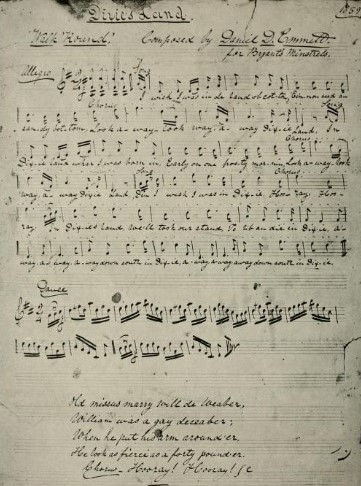 Dixie's Land.
1859
"Walk 'Round".
Composed by Daniel D. Emmett.
for Bryant's Minstrels.
Allegro
I wish I was in de land ob cot-ton,
Chorus
can-dy bot-tom, Look a-way- look way, a-way Dixie Land. In
Chorus
Dixie land where I was born in, Early on one frosty mornin, Look a-way-look
Chorus
way. a-way Dixie Land. Den I wish I was in Dixie. Hoo-ray- Hoo-
ray. In Dixies Land. We'll took our stand, To lib an die in Dixie. a-
way. a-way. a-way down south in Dixie. a-way-a-way-away down south in Dixie
Dance
Old missus marry will de weaber,
William was a gay deceaber;
When he put his arm around 'er
He look as fierce as a forty pounder.
Chorus- Hooray! Hooray! &c